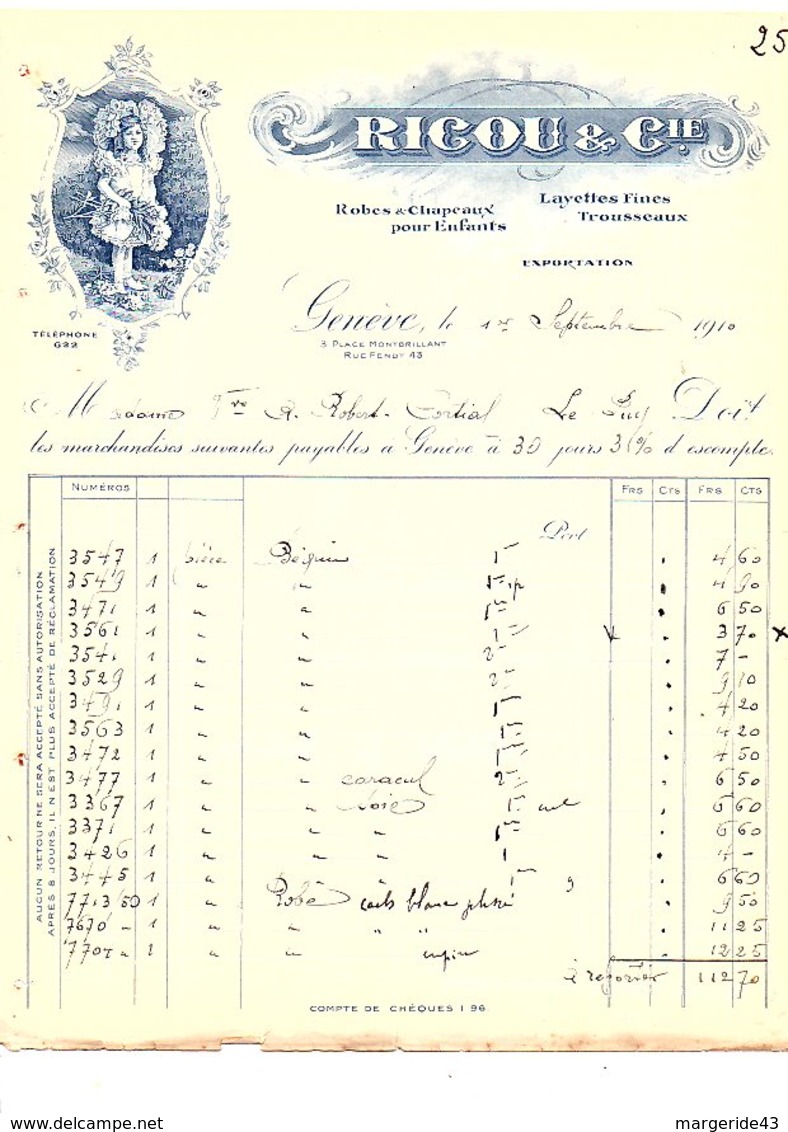 25
RICOU & CIE
Robes & Chapeaux
pour Enfants
Layettes Fines
Trousseaux
EXPORTATION
TÉLÉPHONE
622
Genève, le 1er Septembre 1910
3 PLACE MONTBRILLANT
RUE FENDT 43
Madame Vve A. Robert-Cortial Le Puy Doit
les marchandises suivantes payables à Genève à 30 jours 3% d'escompte.
NUMÉROS FRS CTS FRS CTS
Port
3547 1 pièce Béguin 4 60
3549 1 " " 4 90
3471 1 " " 6 50
3561 1 " " 3 70 x
3541 1 " " 7 -
3529 1 " " 9 10
3491 1 " " 4 20
3563 1 " " 4 20
3472 1 " " 4 50
3477 1 " " caracul 6 50
3367 1 " " soie 6 60
3371 1 " " " 6 60
3426 1 " " " 4 -
3445 1 " " " 6 60
7713/50 1 " Robe blanc 9 50
7670 " 1 " " " " 11 25
7705 " 1 " " 12 25
à reporter 112 70
AUCUN RETOUR NE SERA ACCEPTÉ SANS AUTORISATION
APRÈS 8 JOURS, IL N'EST PLUS ACCEPTÉ DE RÉCLAMATION
COMPTE DE CHÈQUES I 96.
www.delcampe.net
margeride43